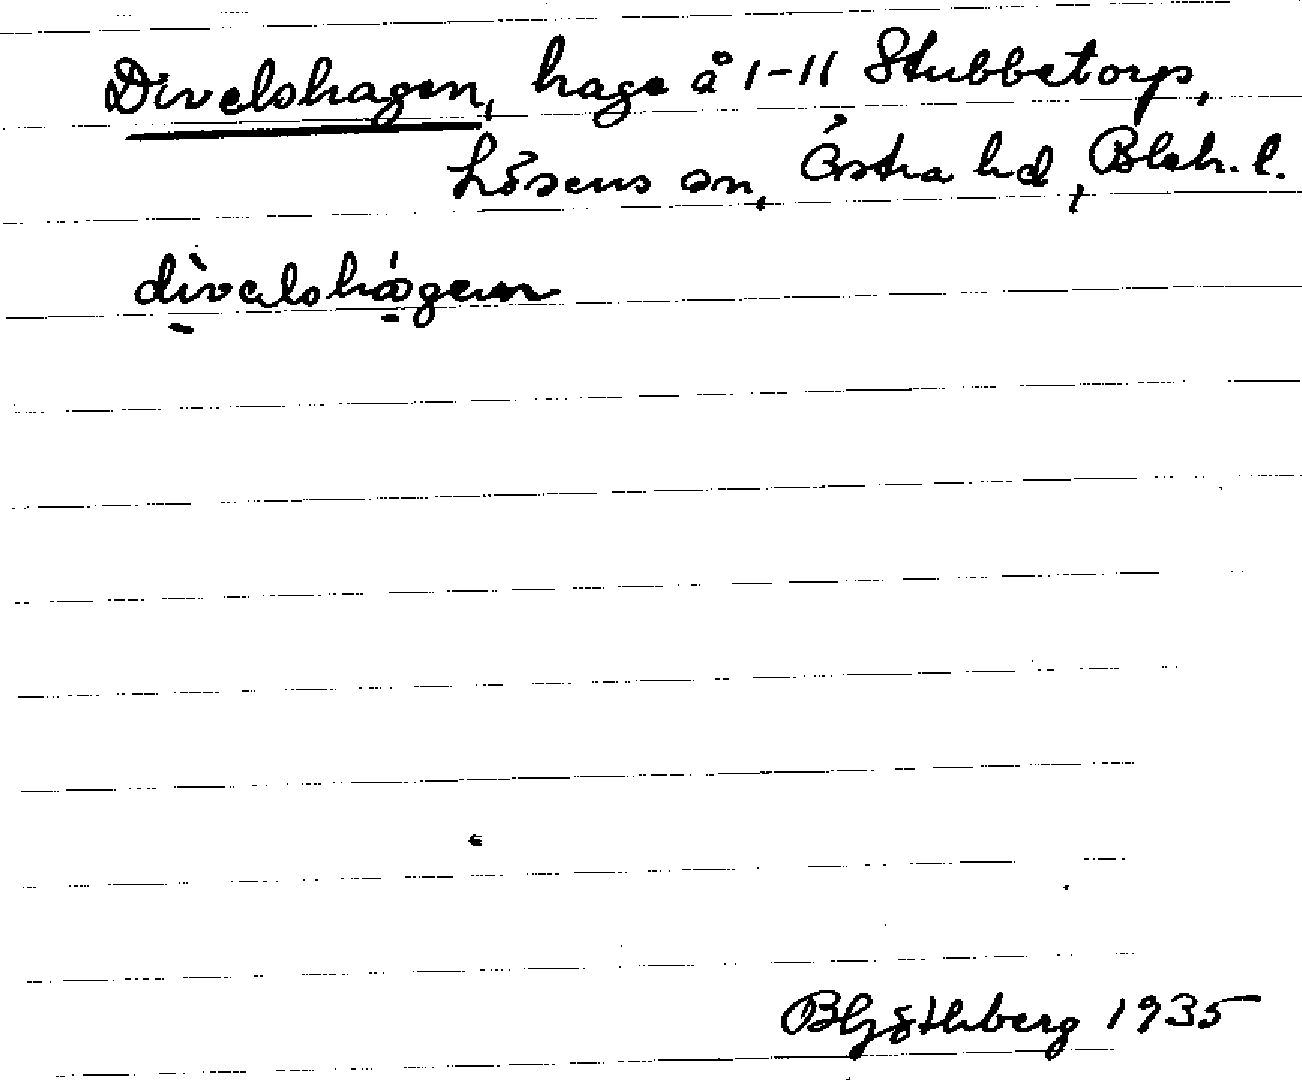 Divelshagen, hage å 1-11 Stubbetorp,
Lösens sn, Östra hd, Blek. l.
divalshagen
1935